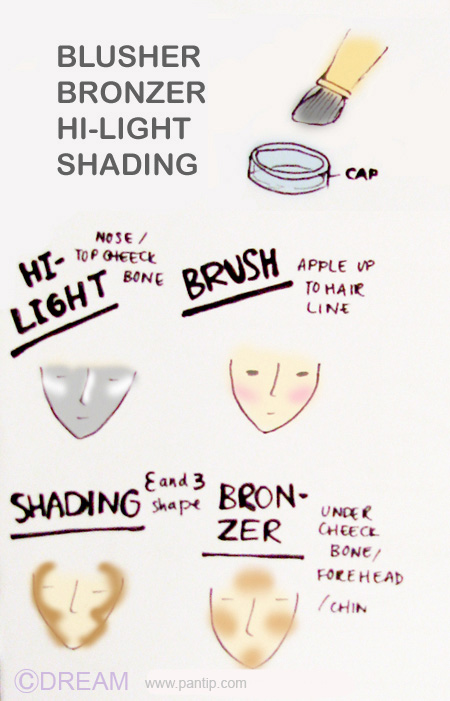 BLUSHER
BRONZER
HI-LIGHT
SHADING
CAP
HI-
LIGHT
NOSE /
TOP CHEECK
BONE
BRUSH
APPLE UP
TO HAIR
LINE
SHADING
Ɛ and 3
shape
BRON-
ZER
UNDER
CHEECK
BONE/
FOREHEAD
/CHIN
©DREAM www.pantip.com